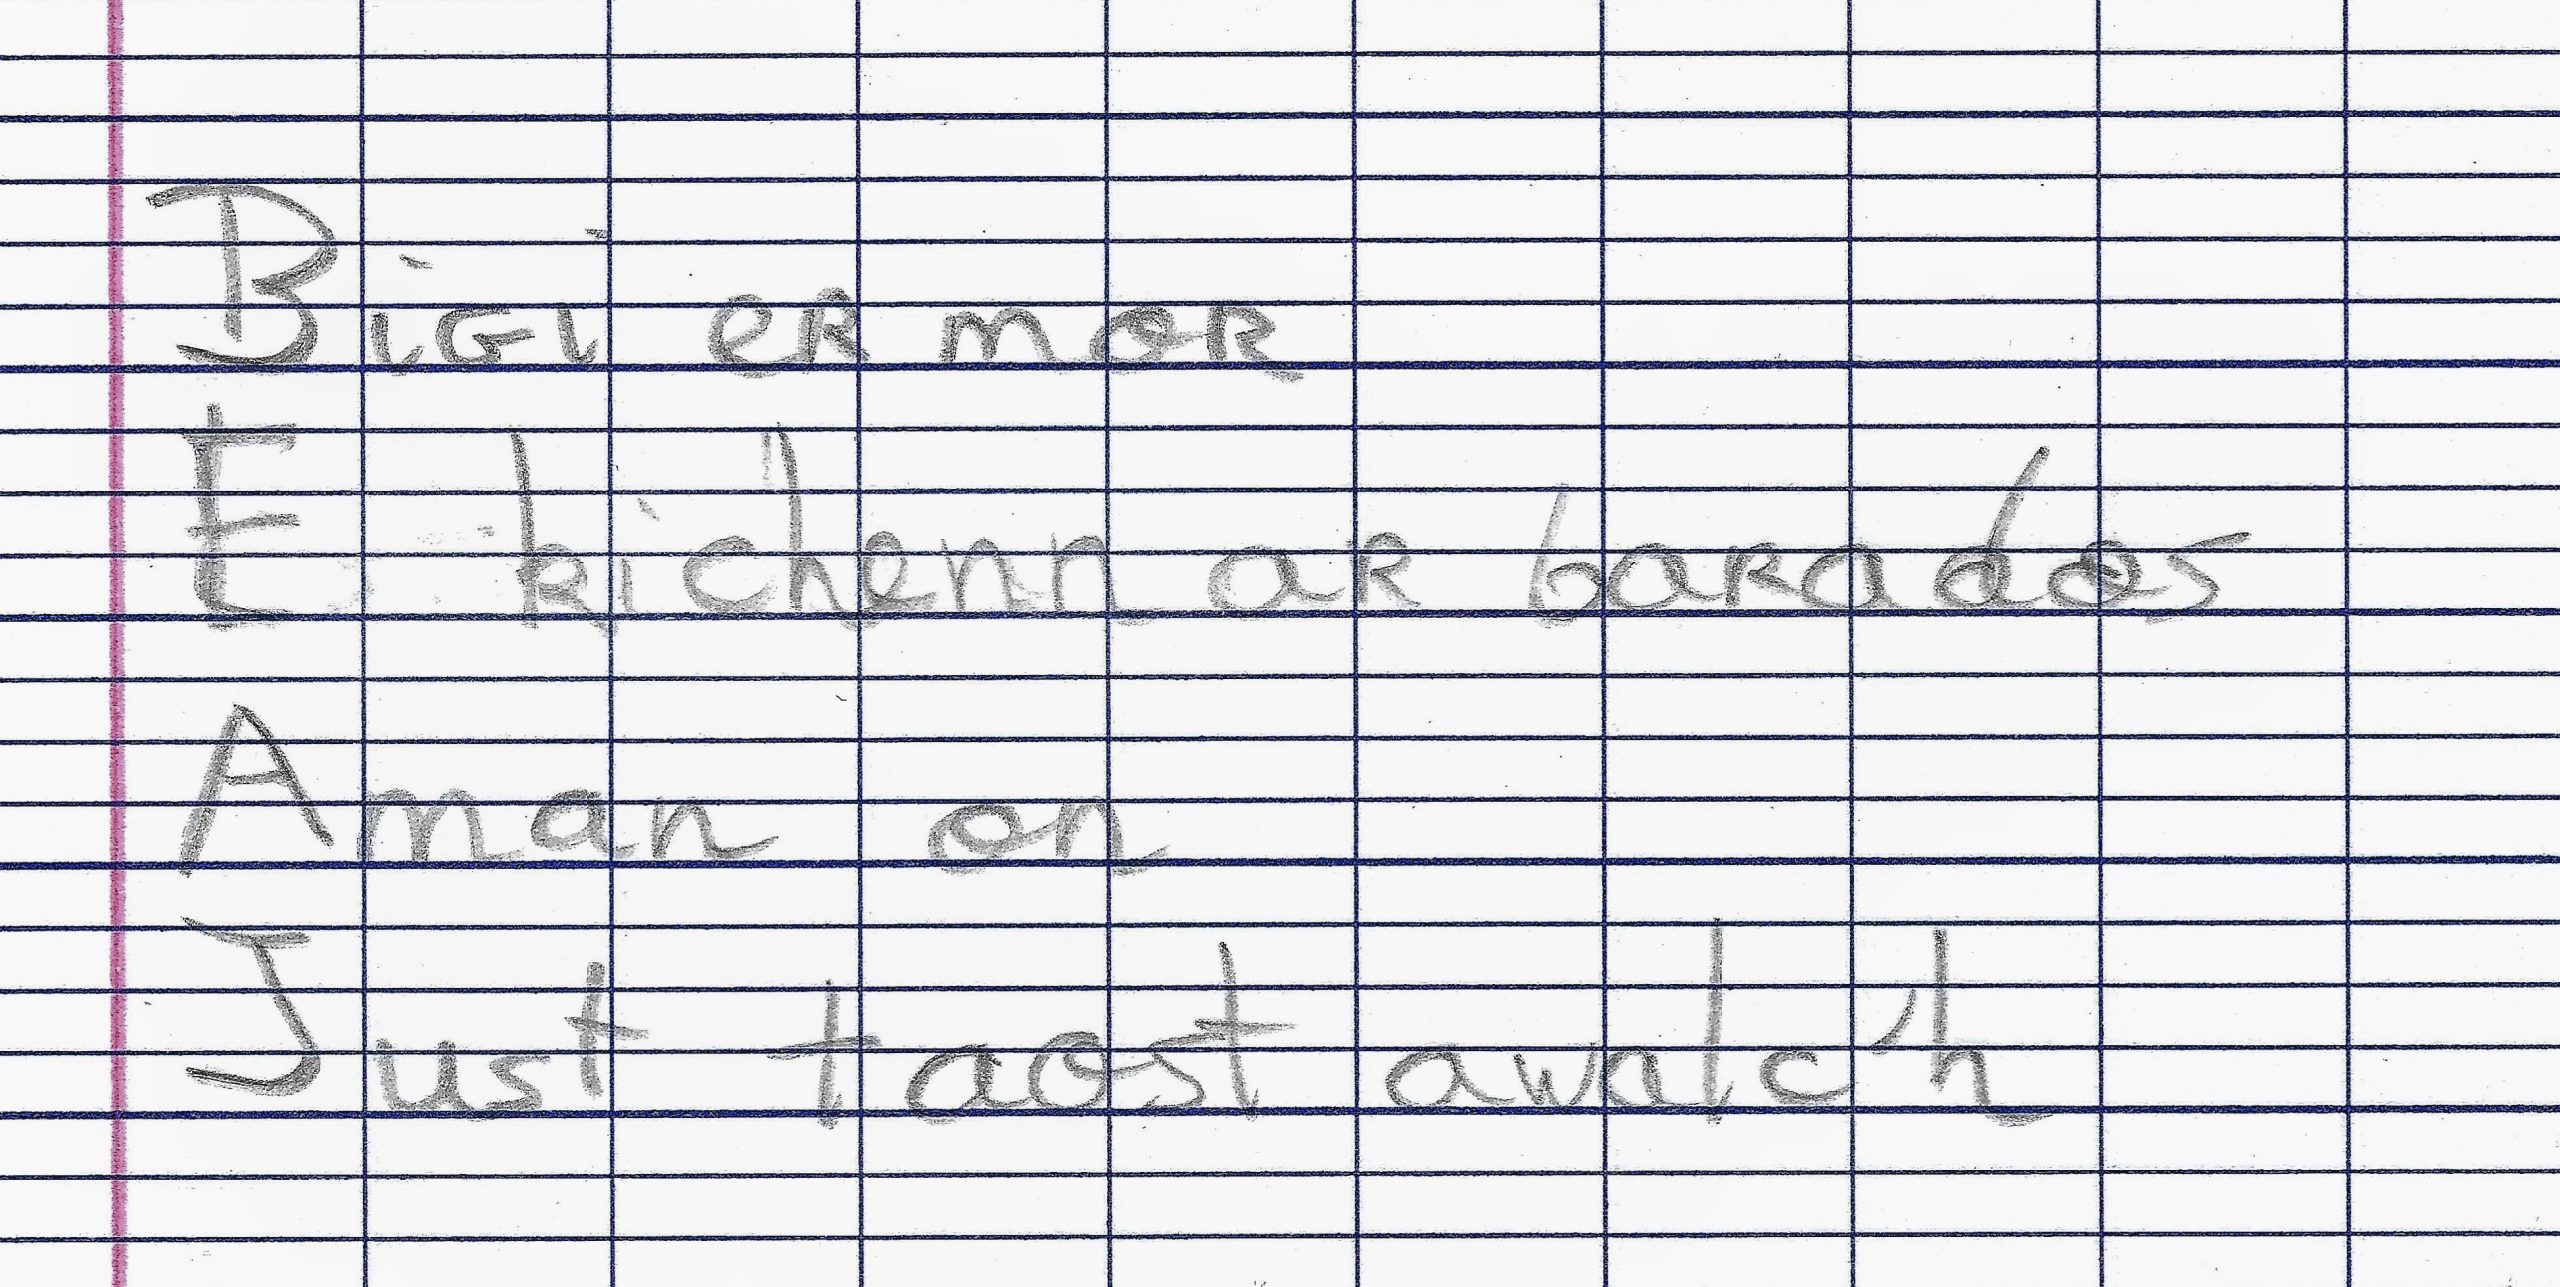 Bigi er mor
E kichenn ar barados
Aman on
Just taost awalc'h